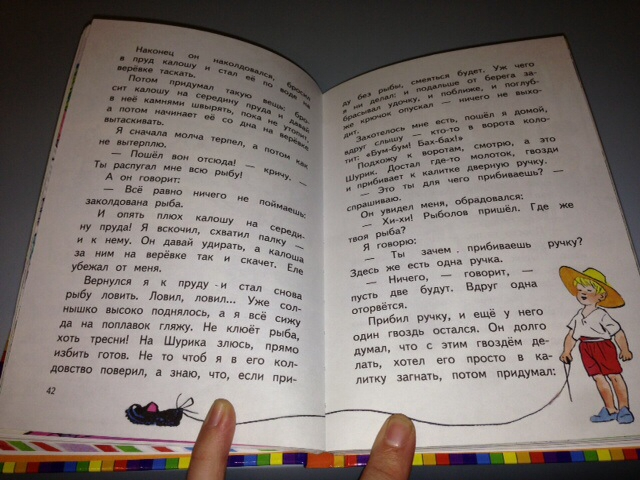 Наконец он наколдовался, бросил
в пруд калошу и стал её по воде на
верёвке таскать.
Потом придумал такую вещь: бро-
сит калошу на середину пруда и давай
в неё камнями швырять, пока не утопит,
а потом начинает её со дна на верёвке
вытаскивать.
Я сначала молча терпел, а потом как
не вытерплю.
— Пошёл вон отсюда! — кричу, —
Ты распугал мне всю рыбу!
А он говорит:
— Всё равно ничего не поймаешь:
заколдована рыба.
И опять плюх калошу на середи-
ну пруда! Я вскочил, схватил палку —
и к нему. Он давай удирать, а калоша
за ним на верёвке так и скачет. Еле
убежал от меня.
Вернулся я к пруду и стал снова
рыбу ловить. Ловил, ловил... Уже сол-
нышко высоко поднялось, а я всё сижу
да на поплавок гляжу. Не клюёт рыба,
хоть тресни! На Шурика злюсь, прямо
избить готов. Не то чтоб я в его кол-
довство поверил, а знаю, что, если при-
42
ду без рыбы, смеяться будет. Уж чего
я ни делал: и подальше от берега за-
брасывал удочку, и поближе, и поглуб-
же крючок опускал — ничего не выхо-
дит.
Захотелось мне есть, пошёл я домой,
вдруг слышу — кто-то в ворота коло-
тит: «Бум-бум! Бах-бах!»
Подхожу к воротам, смотрю, а это
Шурик. Достал где-то молоток, гвозди
и прибивает к калитке дверную ручку.
— Это ты для чего прибиваешь? —
спрашиваю.
Он увидел меня, обрадовался:
— Хи-хи! Рыболов пришёл. Где же
твоя рыба?
Я говорю:
— Ты зачем прибиваешь ручку?
Здесь же есть одна ручка.
— Ничего, — говорит, —
пусть две будут. Вдруг одна
оторвётся.
Прибил ручку, и ещё у него
один гвоздь остался. Он долго
думал, что с этим гвоздём де-
лать, хотел его просто в ка-
литку загнать, потом придумал: